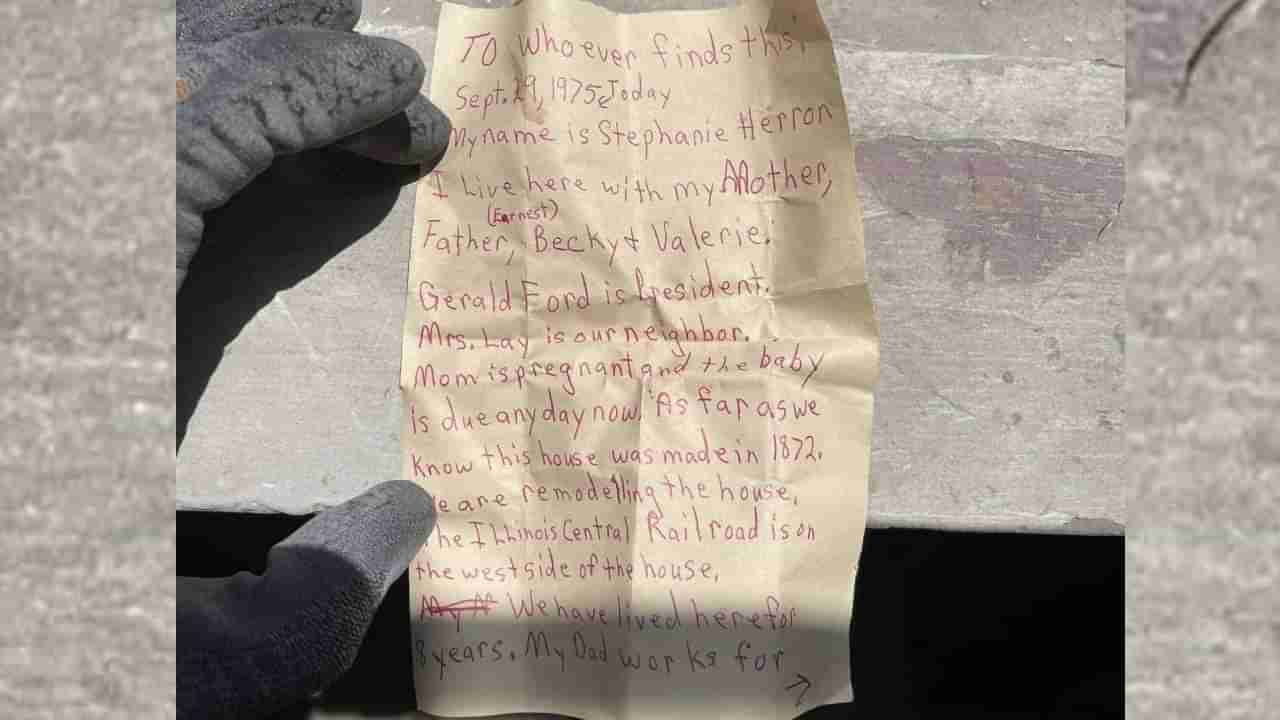 TO Whoever finds this!
Sept. 29, 1975, Today
My name is Stephanie Herron
I Live here with my Mother,
(Earnest)
Father, Becky & Valerie.
Gerald Ford is President.
Mrs. Lay is our neighbor.
Mom is pregnant and the baby
is due any day now. As far as we
know this house was made in 1872.
We are remodelling the house.
The Illinois Central Railroad is on
the west side of the house.
My M We have lived here for
8 years. My Dad works for
→